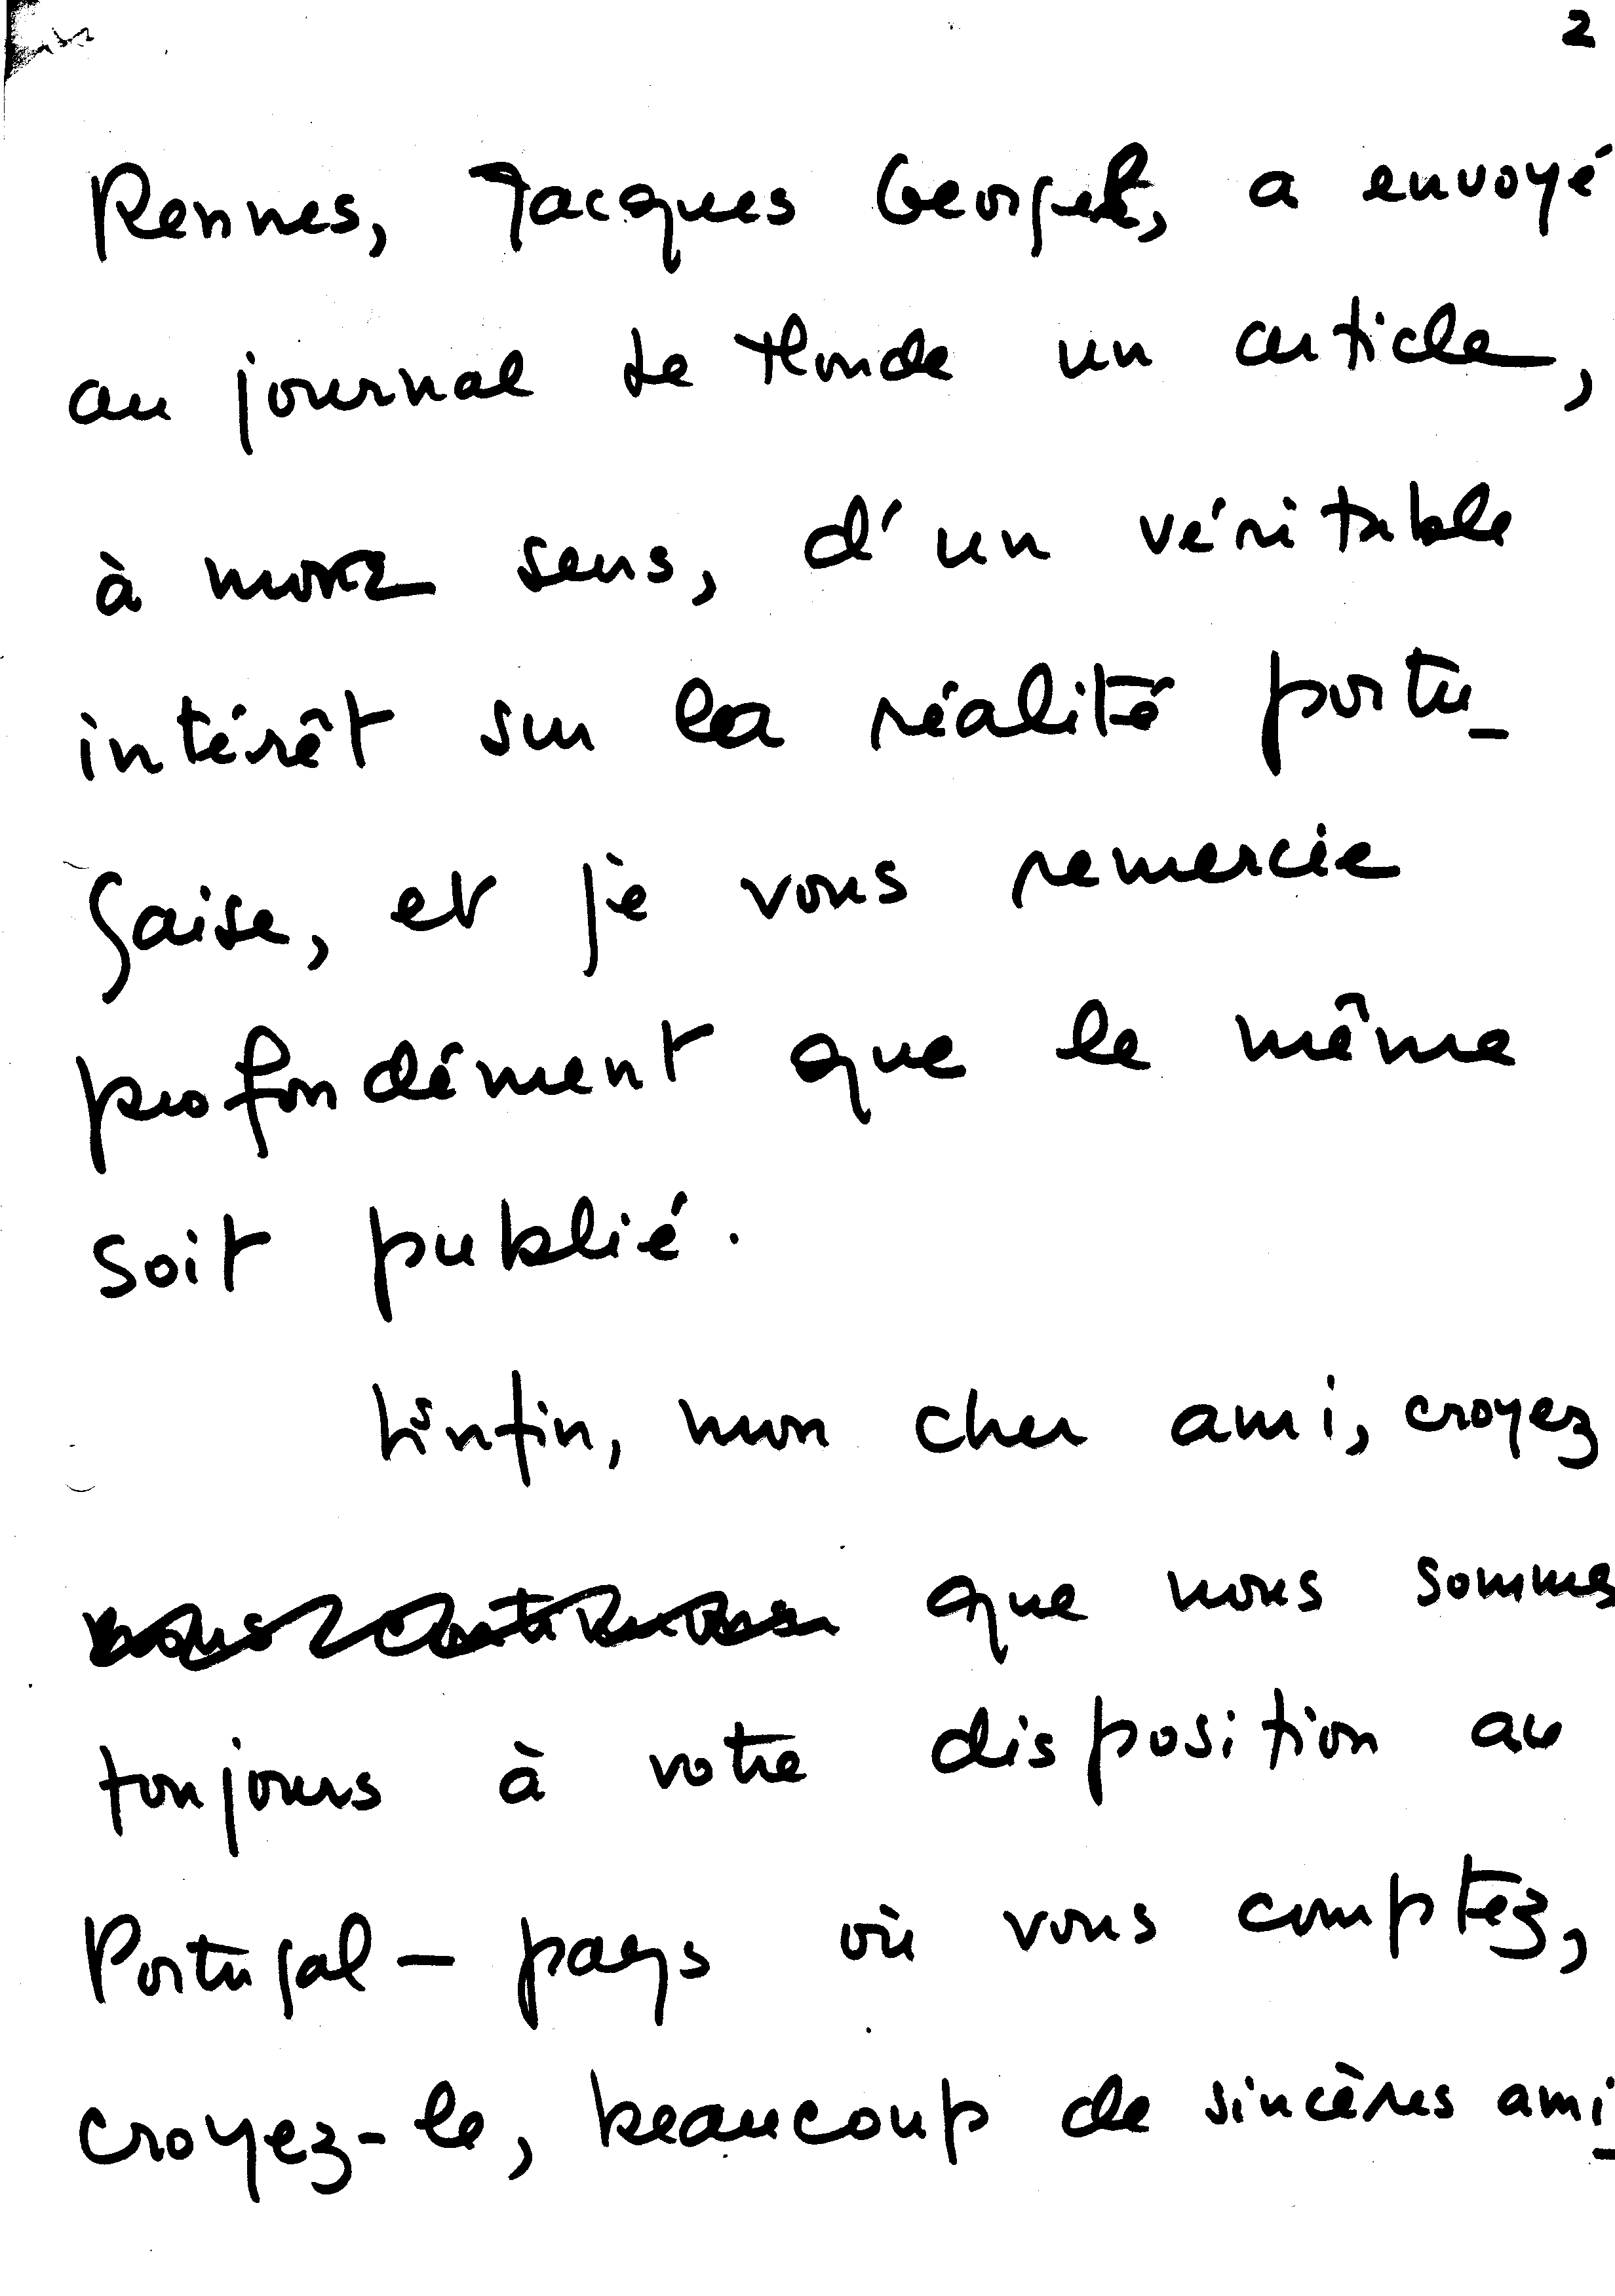 2
Rennes, Jacques Georgel, a envoyé
au journal Le Monde un article,
à mon sens, d'un véritable
intérêt sur la réalité portu-
gaise, et je vous remercie
profondément que le même
soit publié.
Enfin, mon cher ami, croyez
que nous sommes
toujours à votre disposition au
Portugal — pays où vous comptez,
croyez-le, beaucoup de sincères ami-